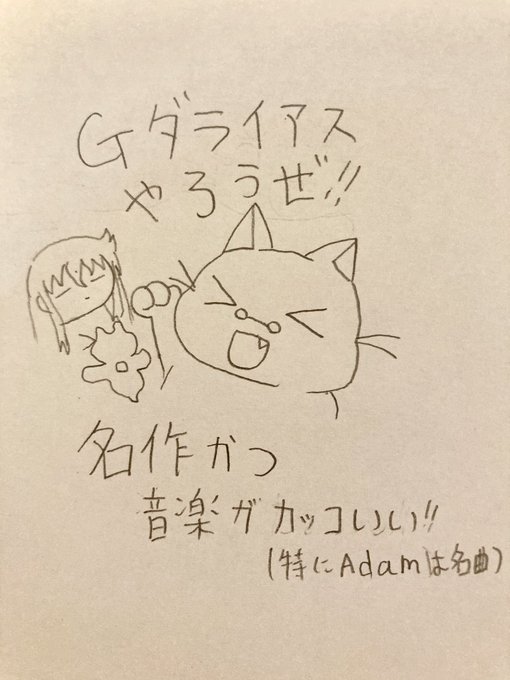 Gダライアス
やろうぜ!!
名作かつ
音楽がカッコいい!!
(特にAdamは名曲)